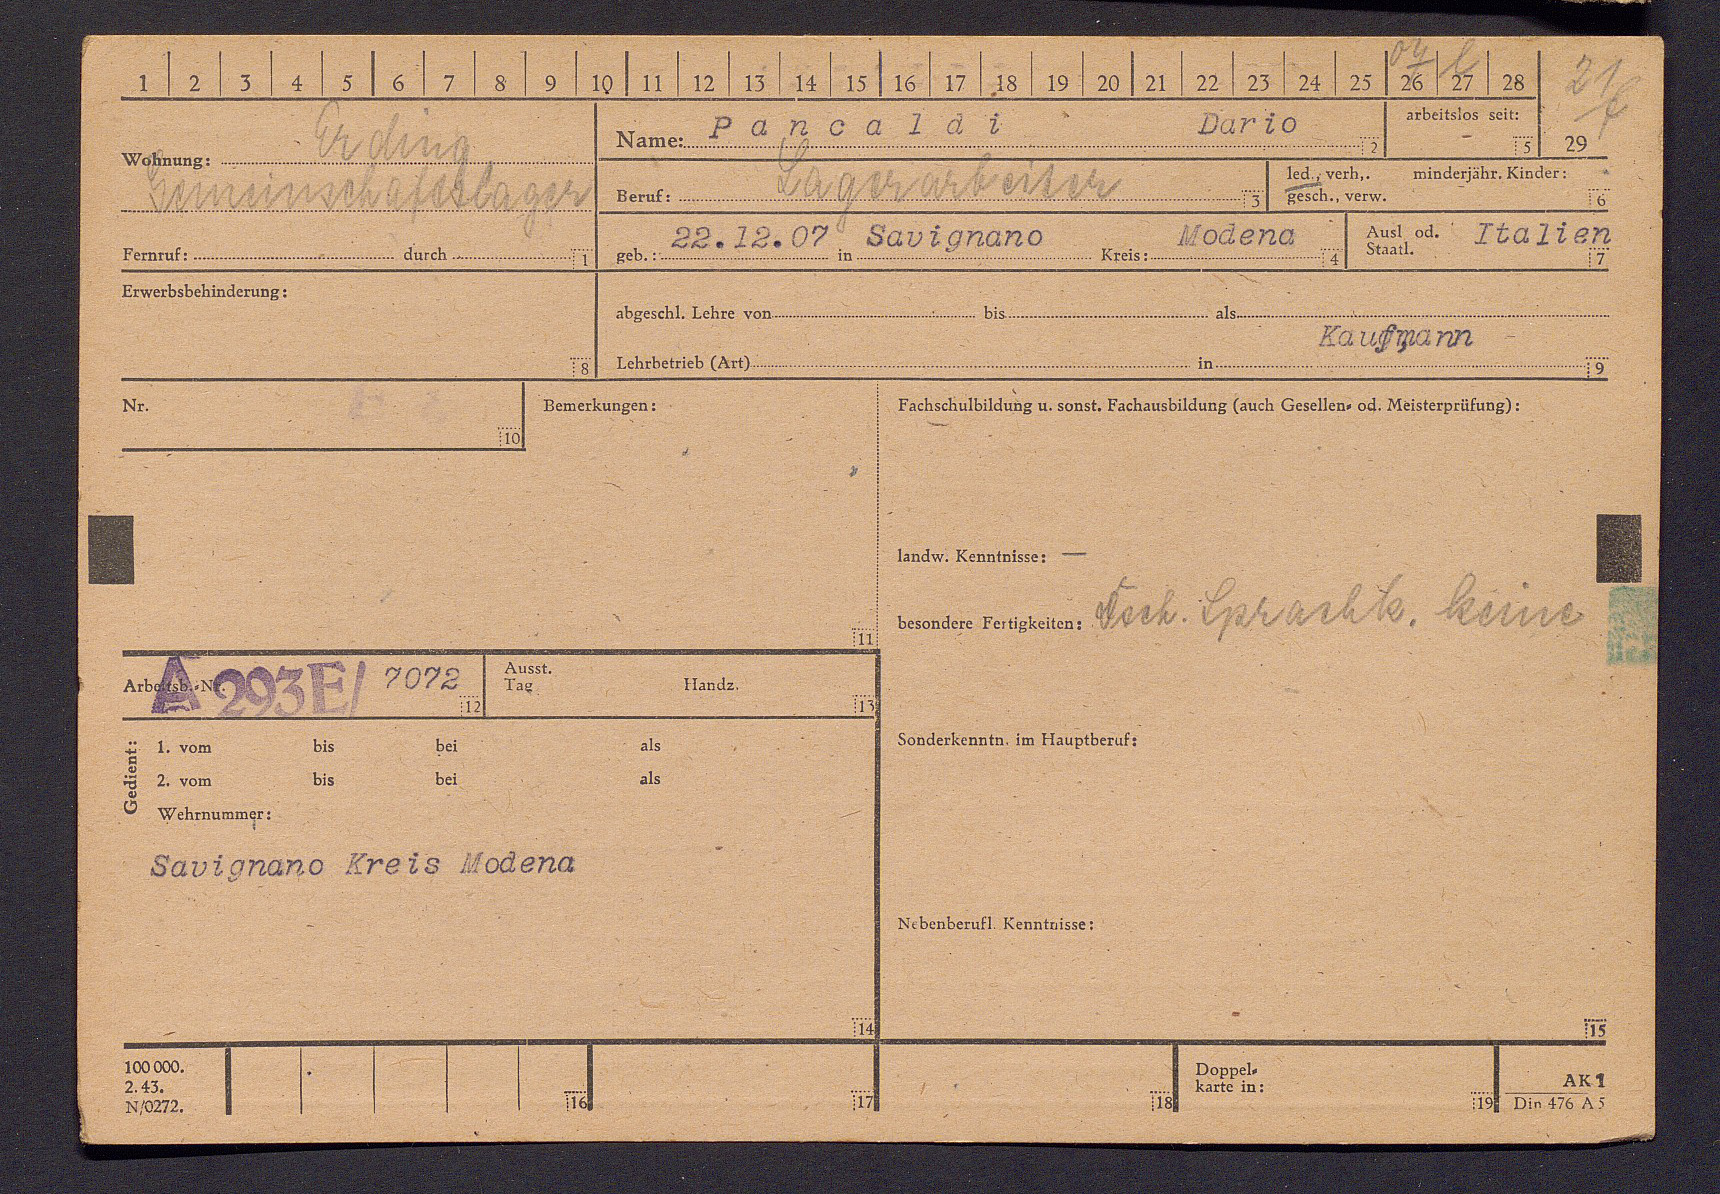 1 2 3 4 5 6 7 8 9 10 11 12 13 14 15 16 17 18 19 20 21 22 23 24 25 26 27 28
29
Wohnung: Erding
Gemeinschaftslager
Fernruf: durch 1
Name: Pancaldi Dario 2
arbeitslos seit: - 5
Beruf: Lagerarbeiter 3
led., verh,. minderjähr. Kinder:
gesch., verw. 6
geb.: 22.12.07 in Savignano Kreis: Modena 4
Ausl od. Italien
Staatl. 7
Erwerbsbehinderung:
8
abgeschl. Lehre von bis als
Kaufmann
Lehrbetrieb (Art) in 9
Nr.
10
Bemerkungen:
11
Fachschulbildung u. sonst. Fachausbildung (auch Gesellen- od. Meisterprüfung):
landw. Kenntnisse: —
besondere Fertigkeiten: Dtsch. Sprachk. keine
Arbeitsb.-Nr. A 293E/ 7072 12
Ausst.
Tag Handz. 13
Sonderkenntn. im Hauptberuf:
Gedient:
1. vom bis bei als
2. vom bis bei als
Wehrnummer:
Savignano Kreis Modena
14
Nebenberufl. Kenntnisse:
15
100 000.
2. 43.
N/0272.
16
17
18
Doppel-
karte in:
19
AK 1
Din 476 A 5